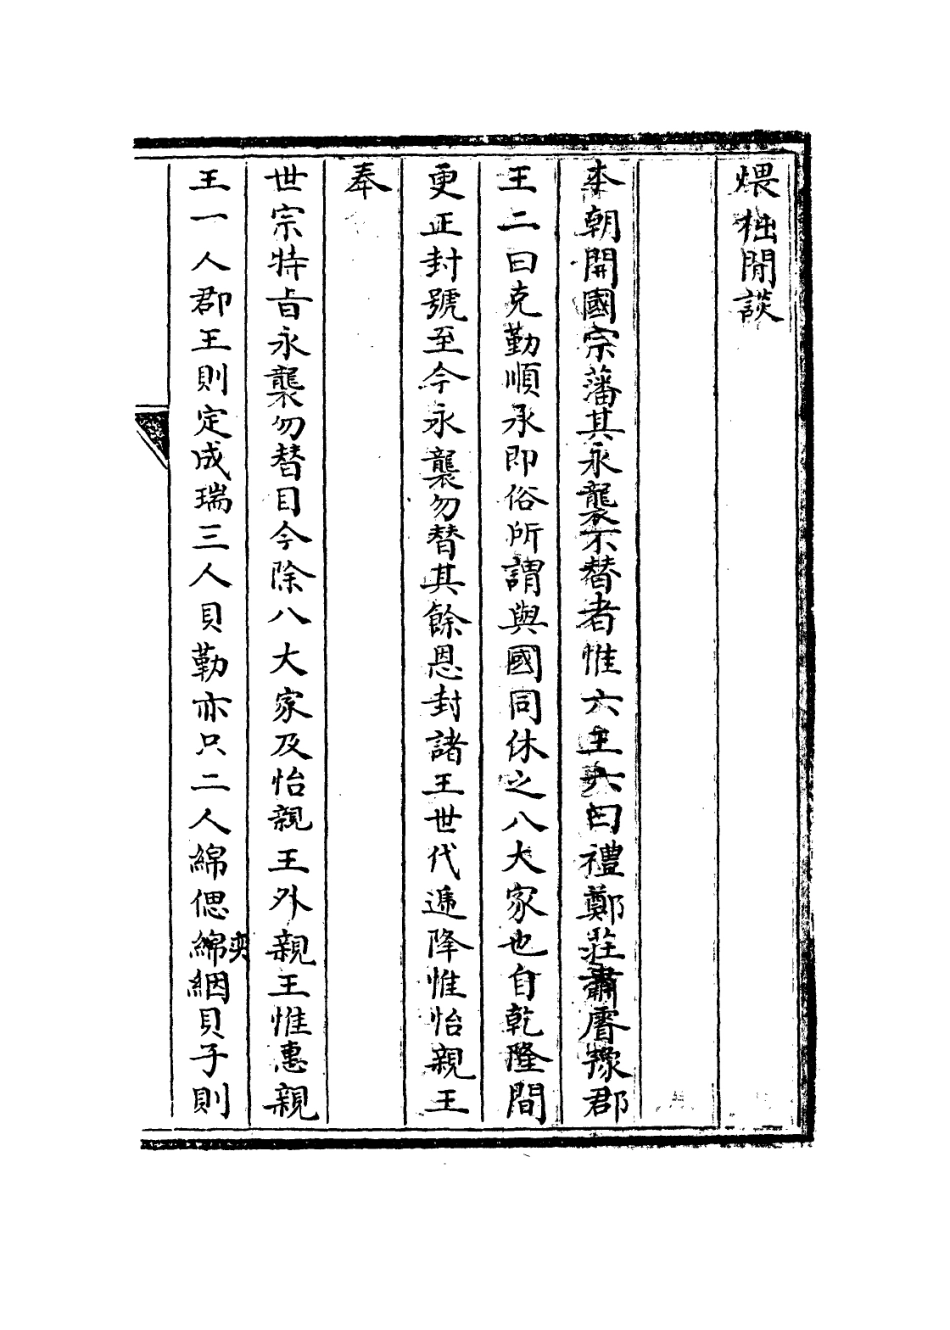 煨柮閒談
本朝開國宗藩其永襲不替者惟六王六曰禮鄭莊肅睿豫郡
王二曰克勤順承即俗所謂與國同休之八大家也自乾隆間
更正封號至今永襲勿替其餘恩封諸王世代遞降惟怡親王
奉
世宗特旨永襲勿替目今除八大家及怡親王外親王惟惠親
王一人郡王則定成瑞三人貝勒亦只二人綿偲綿奕絪貝子則